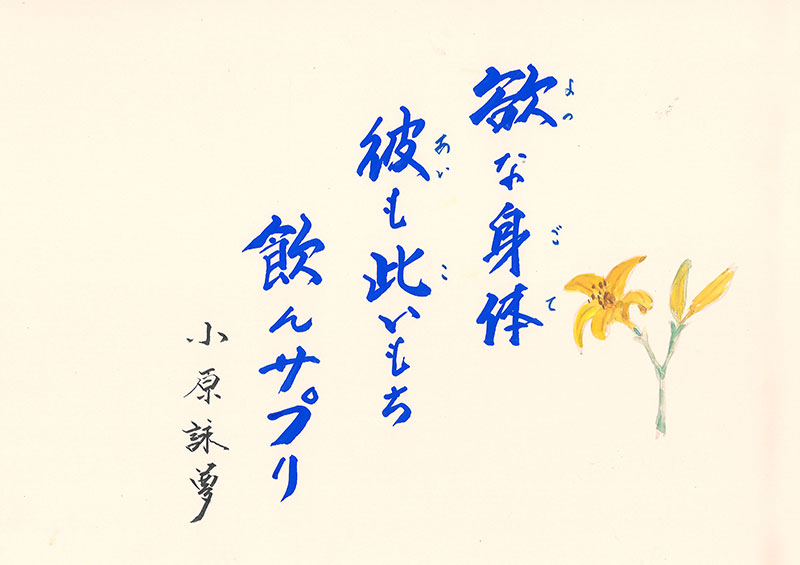 欲な身体
よつ ごて
彼も此いもち
あい こ
飲んサプリ
小原詠夢